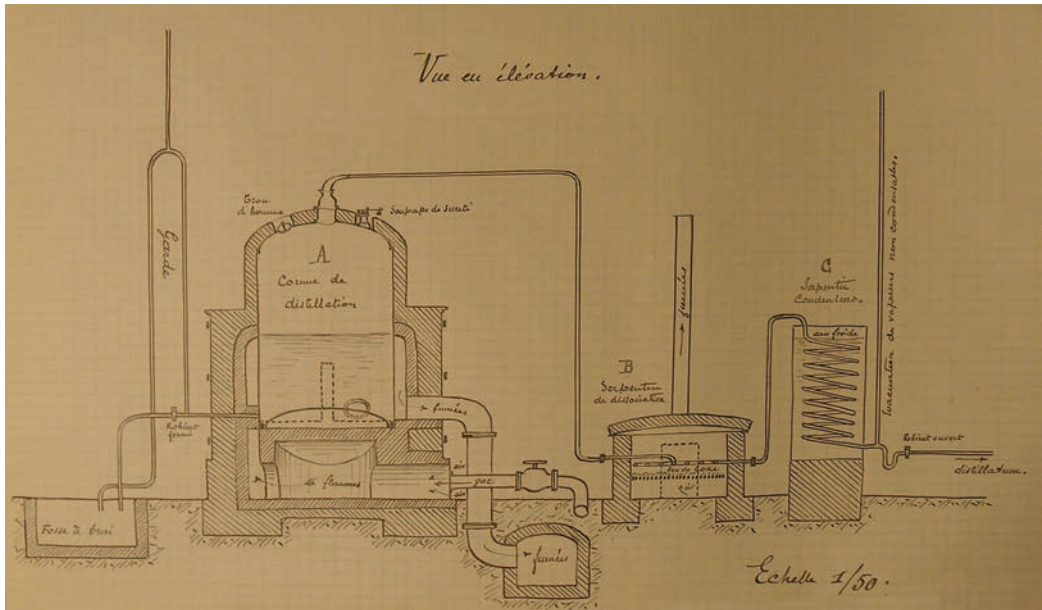 Vue en élévation.
Garde
Trou
d'homme
Soupape de sureté
A
Cornue de
distillation
fumées
Robinet
fermé
flammes
air
gaz
air
Fosse à brai
fumées
fumées
B
Serpentin
de dissociation
feu de coke
air
C
Serpentin
Condenseur.
eau froide
Evacuation de vapeurs non condensables.
Robinet ouvert
distillatum.
Echelle 1/50.